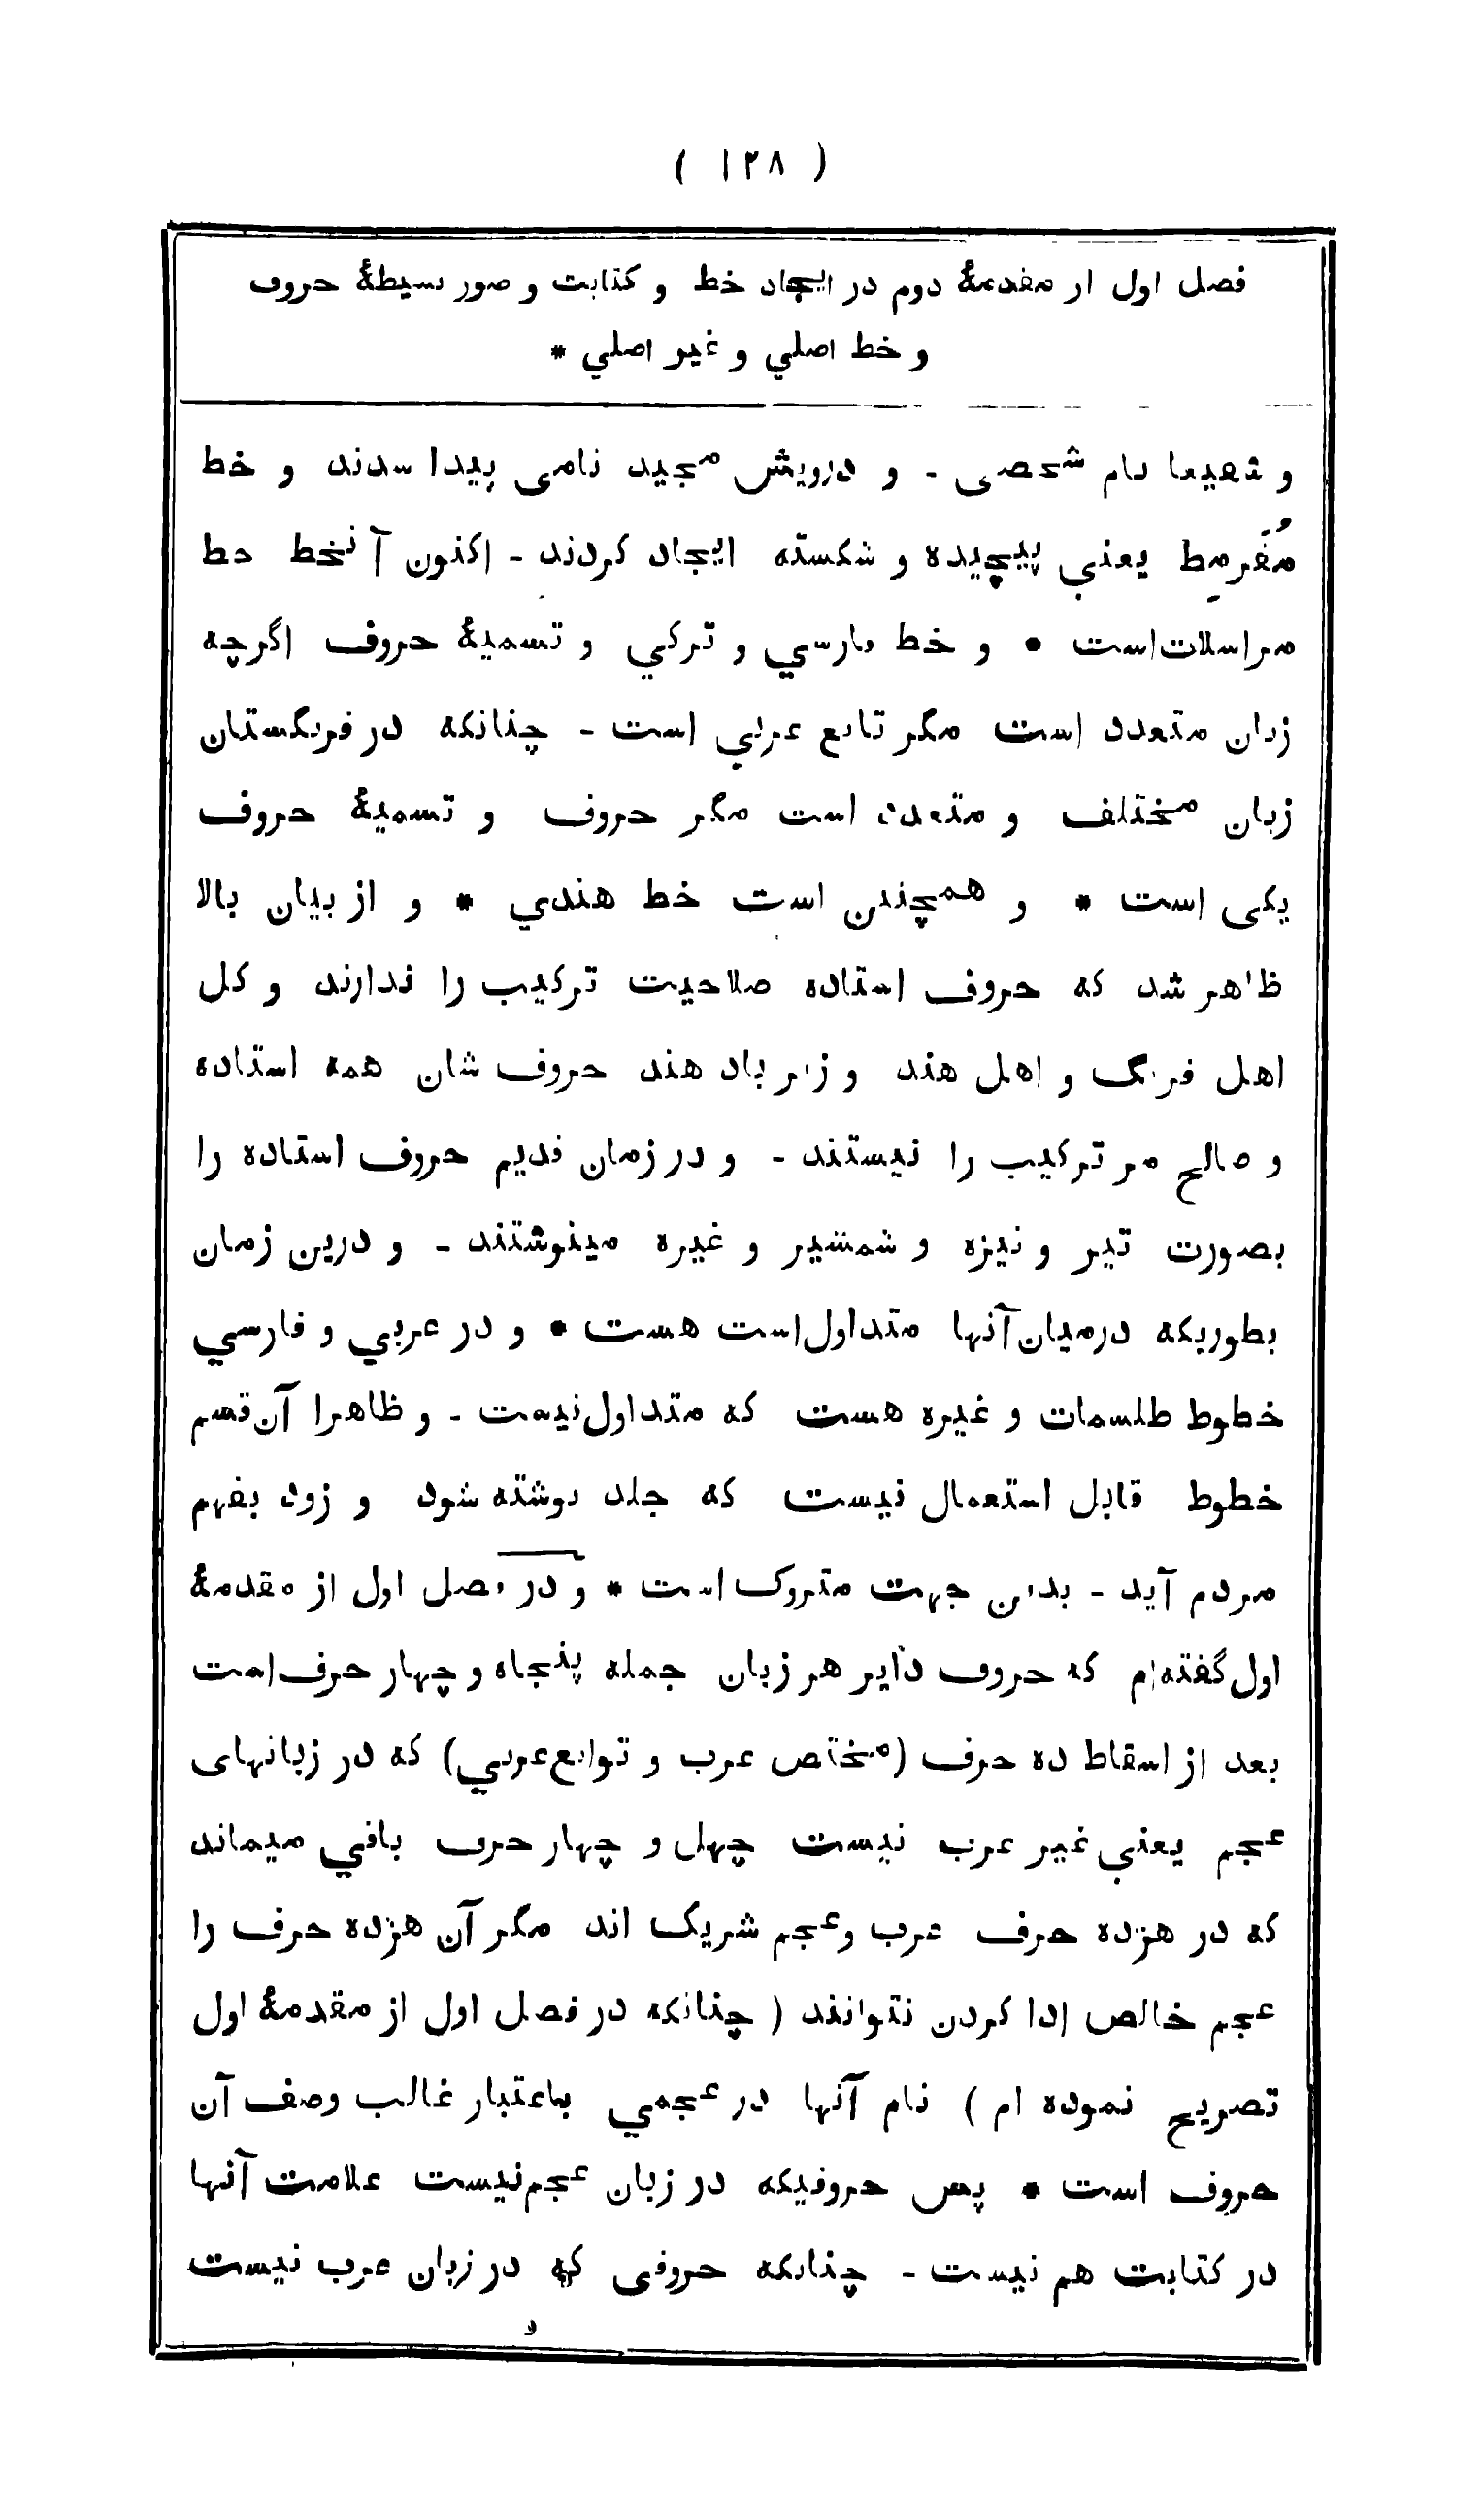 ( ۱۲۸ )
فصل اول از مقدمهٔ دوم در ایجاد خط و کتابت و صور بسیطهٔ حروف
و خط اصلي و غیر اصلي *
و شفیعا نام شخصی - و درویش مجید نامی پیدا شدند و خط
مُقَرمِط یعني پیچیده و شکسته ایجاد کردند - اکنون آنخط خط
مراسلات است * و خط فارسي و ترکي و تسمیهٔ حروف اگرچه
زبان متعدد است مگر تابع عربي است - چنانکه در فرنگستان
زبان مختلف و متعدد است مگر حروف و تسمیهٔ حروف
یکی است * و همچنین است خط هندي * و از بیان بالا
ظاهر شد که حروف استاده صلاحیت ترکیب را ندارند و کل
اهل فرنگ و اهل هند و زیر باد هند حروف شان همه استاده
و صالح مر ترکیب را نیستند - و در زمان قدیم حروف استاده را
بصورت تیر و نیزه و شمشیر و غیره مینوشتند - و درین زمان
بطوریکه درمیان آنها متداول است هست * و در عربي و فارسي
خطوط طلسمات و غیره هست که متداول نیست - و ظاهرا آن قسم
خطوط قابل استعمال نیست که جلد نوشته شود و زود بفهم
مردم آید - بدین جهت متروک است * و در فصل اول از مقدمهٔ
اول گفته‌ام که حروف دایر هر زبان جمله پنجاه و چهار حرف است
بعد از اسقاط ده حرف (مختص عرب و توابع عربي) که در زبانهای
عجم یعني غیر عرب نیست چهل و چهار حرف باقي میماند
که در هزده حرف عرب و عجم شریک اند مگر آن هزده حرف را
عجم خالص ادا کردن نتوانند ( چنانکه در فصل اول از مقدمهٔ اول
تصریح نموده ام ) نام آنها در عجمي باعتبار غالب وصف آن
حروف است * پس حروفیکه در زبان عجم نیست علامت آنها
در کتابت هم نیست - چنانکه حروفی که در زبان عرب نیست